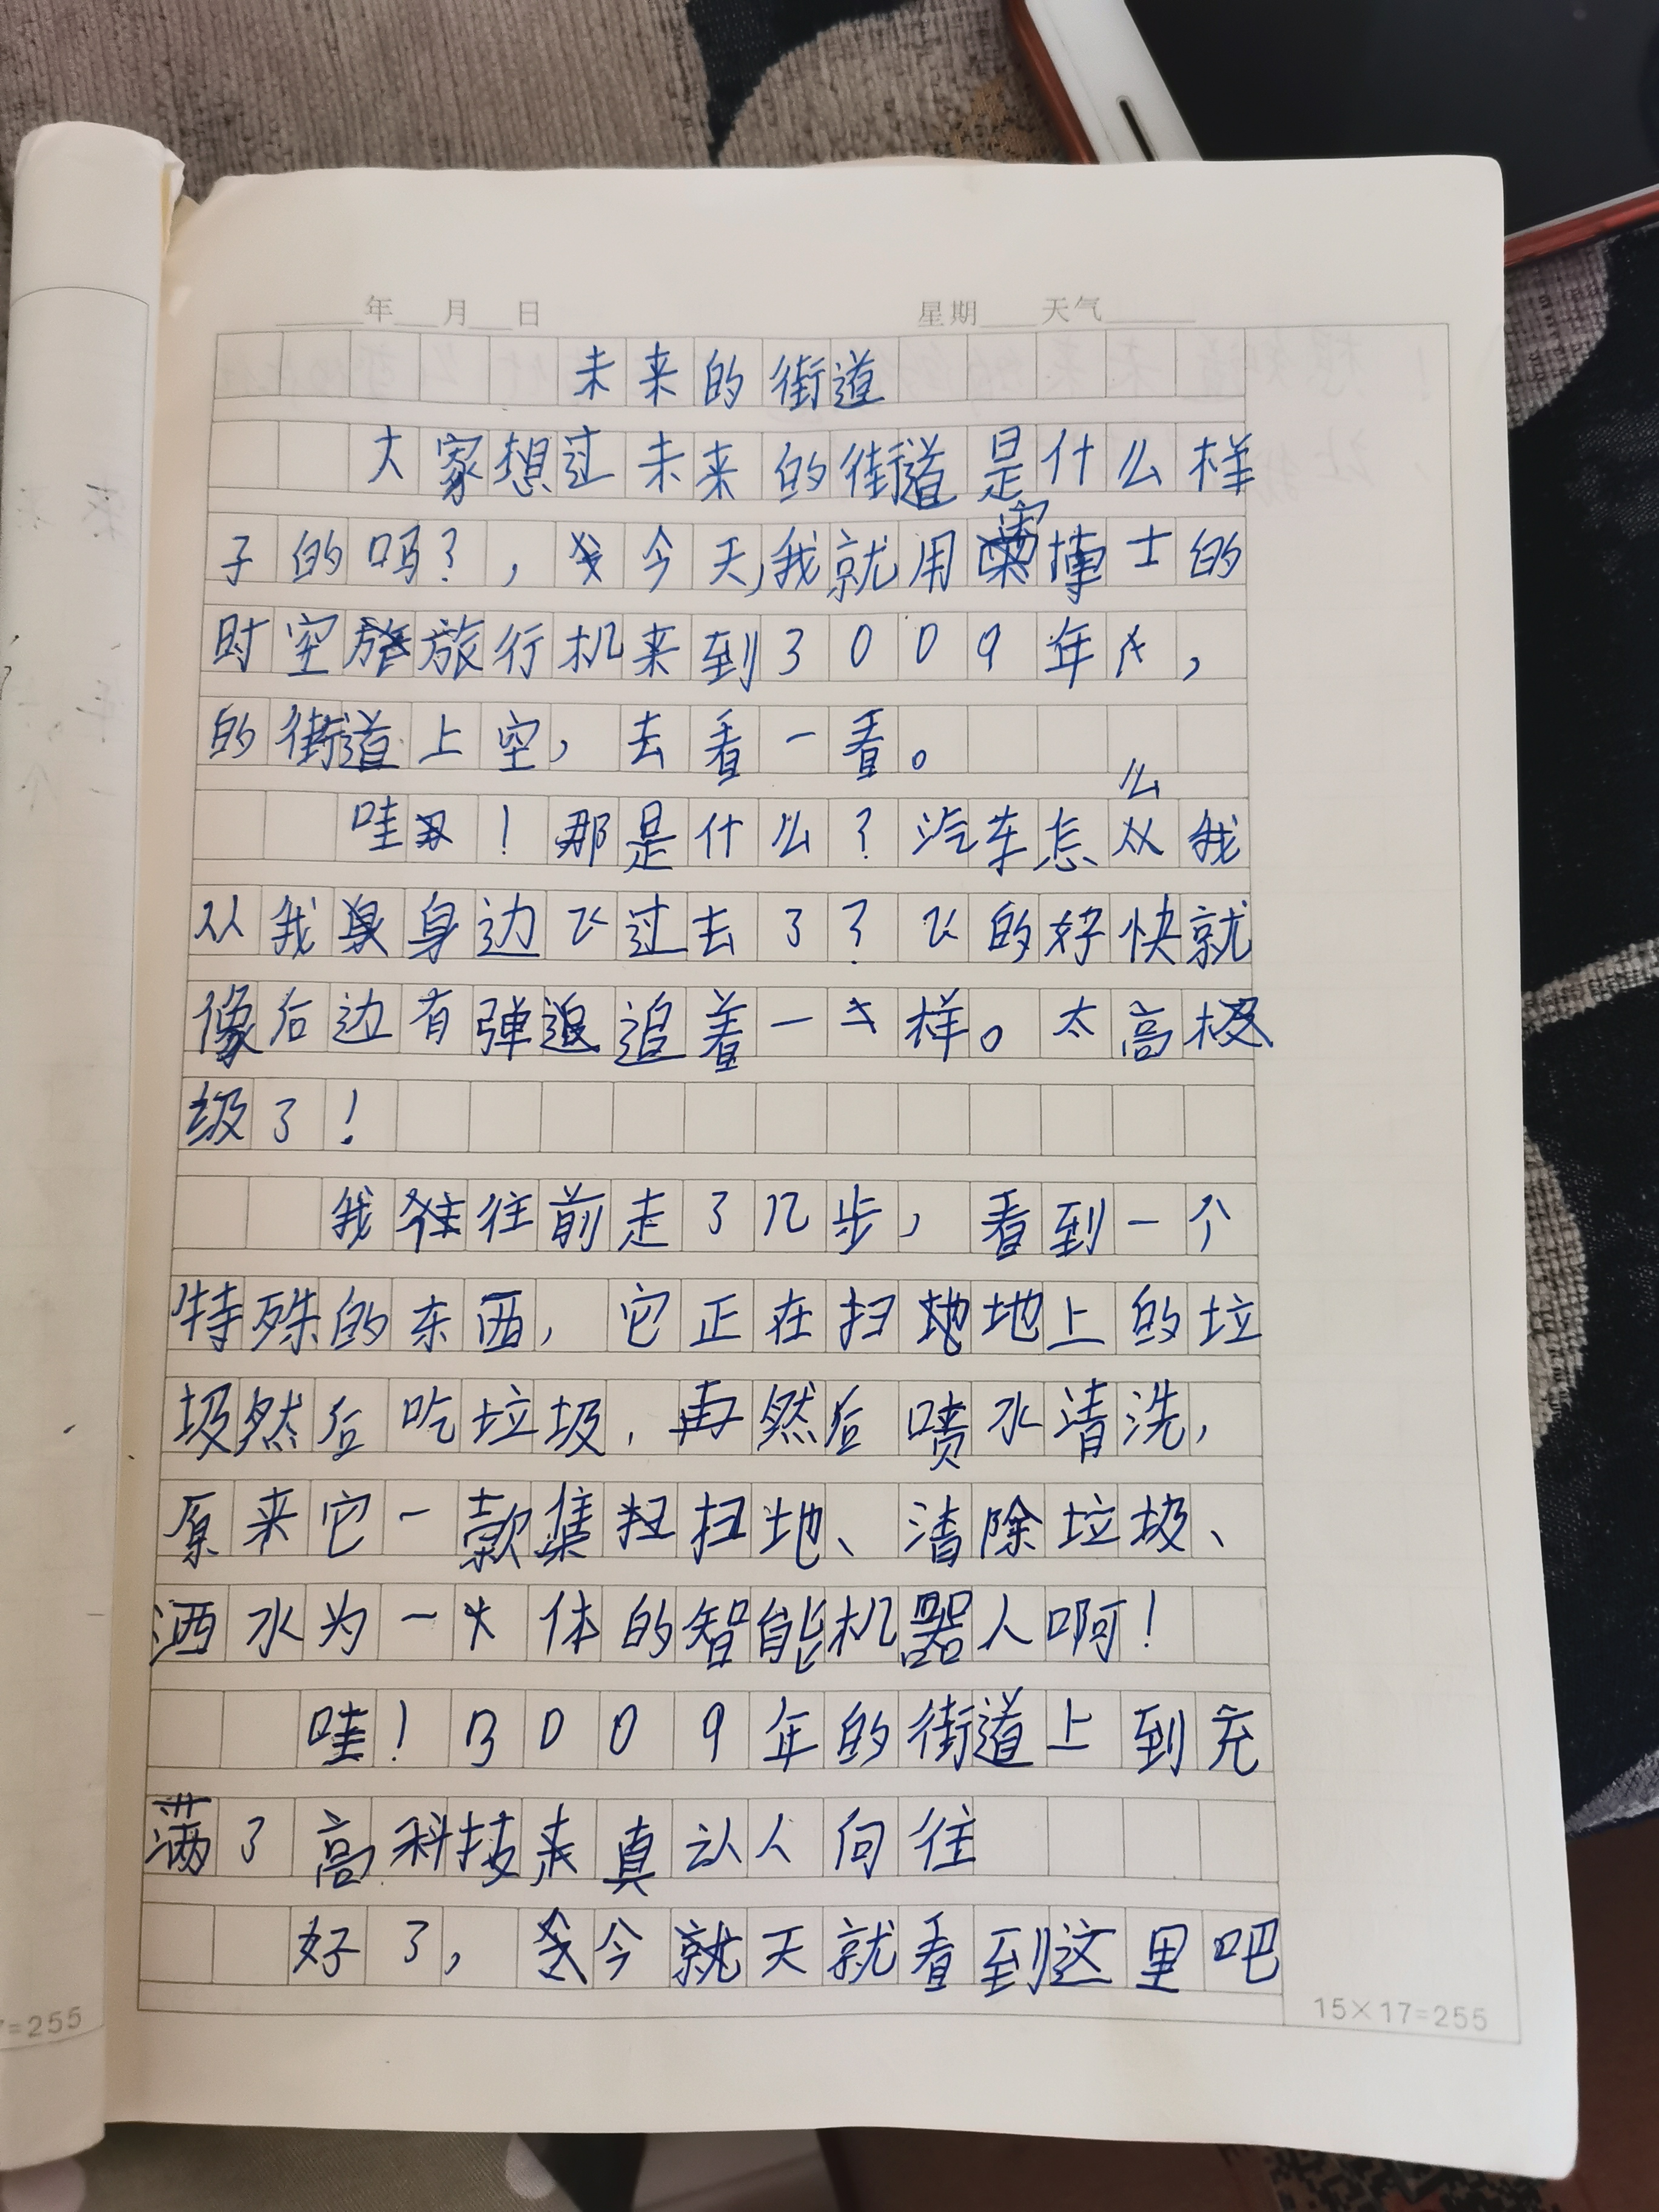 年 月 日 星期 天气
未来的街道
大家想过未来的街道是什么样
子的吗?,今天,我就用雷博士的
时空旅行机来到3009年,
的街道上空,去看一看。
哇!那是什么?汽车怎么
从我身边飞过去了?飞的好快就
像后边有弹追着一样。太高
级了!
我往前走了几步,看到一个
特殊的东西,它正在扫地上的垃
圾然后吃垃圾,再然后喷水清洗,
原来它一款集扫地、清除垃圾、
洒水为一体的智能机器人啊!
哇!3009年的街道上到充
满了高科技真认人向往
好了,今天就看到这里吧
15×17=255
=255